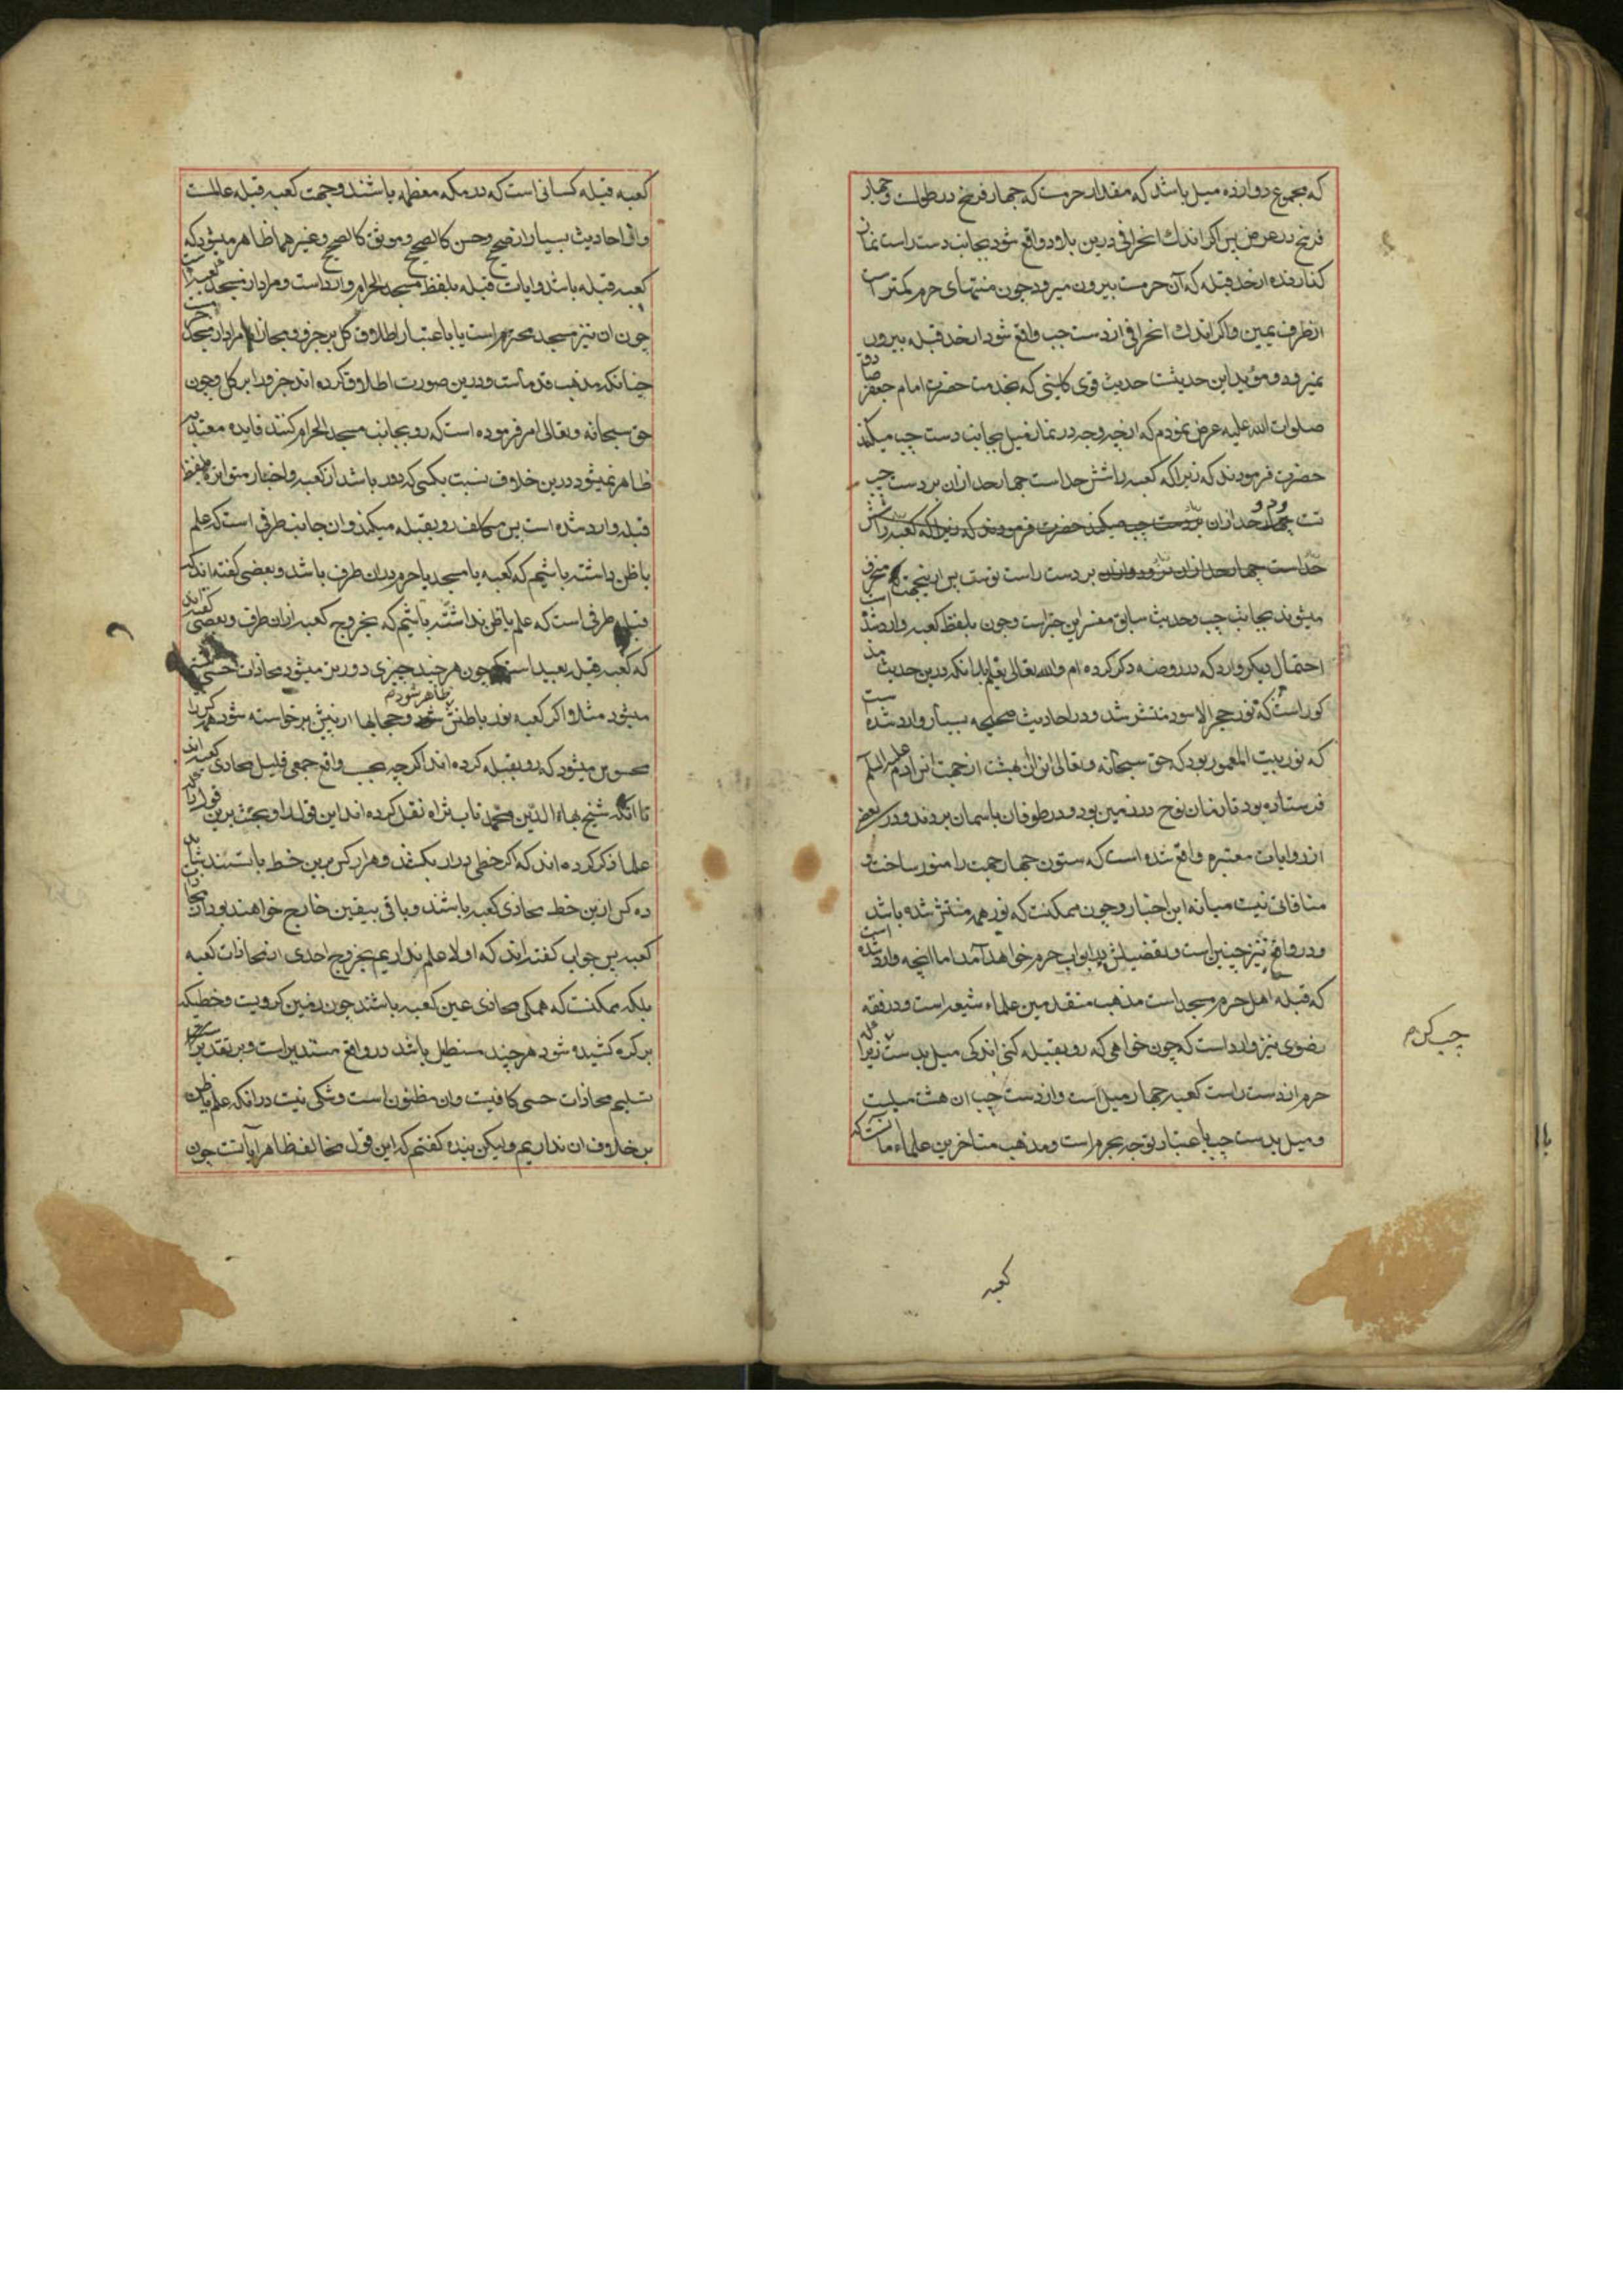 که مجموع دوازده میل باشد که مقدار حرمست که چهار فرسخ در طولست و چهار
فرسخ در عرض پس اگر اندک انحرافی درین بلاد واقع شود بجانب دست راست نماز
کنارنده از حد قبله که آن حرمست بیرون میرود چون منتهای حرم کمتر است
از طرف یمین و اگر اندک انحرافی از دست چپ واقع شود از حد قبله بیرون
نمیرود و مؤید این حدیثست حدیث قوی کلینی که بخدمت حضرت امام جعفر صادق
صلوات الله علیه عرض نمودم که از چه وجه در نماز میل بجانب دست چپ میکنند
حضرت فرمودند که زیرا که کعبه را شش حد است چهار حد ازان بر دست چپ
تست و دو حد ازان بر دست چپ میکنند حضرت فرمودند که زیرا که کعبه را شش
حد است چهار حد ازان بر دست راست توست پس ازینجهت منحرف
میشوند بجانب چپ و حدیث سابق مفسر این خبر است و چون بلفظ کعبه وارد شده است
احتمال دیگر دارد که در روضه ذکر کرده ام والله تعالی یعلم بدانکه درین حدیث مذ
کور است که نور حجر الاسود منتشر شد و در احادیث صحیحه بسیار وارد شده ست
که نور بیت المعمور بود که حق سبحانه و تعالی انرا از بهشت از جهت آدم علیه السلم
فرستاده بود تا زمان نوح در زمین بود و در طوفان باسمان بردند و در بعضی
از روایات معتبره واقع شده است که ستون چهار جهت را منور ساخت و
منافاتی نیست میانه این اخبار و چون ممکنست که نور همه منتشر شده باشد
و در واقع نیز چنین است و تفضیلش در ابواب حرم خواهد آمد اما انچه وارد شده است
که قبله اهل حرم مسجد است مذهب متقدمین علماء شیعه است و در فقه
رضوی نیز وارد است که چون خواهی که رو بقبله کنی اندکی میل بدست چپ کن زیرا که
حرم از دست راست کعبه چهار میل است و از دست چپ ان هشت میلست
و میل بدست چپ باعتبار توجه بحرم است و مذهب متاخرین علماء ما آنست که
چپ کن م
کعبه
کعبه قبله کسانی است که در مکه معظمه باشند و جهت کعبه قبله عالمست
و از احادیث بسیار از صحیح و حسن کالصحیح و موثق کالصحیح و غیر هما ظاهر میشود که
کعبه قبله باشد و ایات قبله بلفظ مسجد الحرام وارد است و مراد از مسجد کعبه است
چون ان نیز مسجد محترم است یا باعتبار اطلاق کل بر جزو مجازا یا مراد از مسجد حرمست
چنانکه مذهب قدماست و درین صورت اطلاق کرده اند جزو را بر کل و چون
حق سبحانه و تعالی امر فرموده است که رو بجانب مسجد الحرام کنند فایده معتد به
ظاهر نمیشود درین خلاف نسبت بکسی که دور باشد از کعبه و اخبار متواتره بلفظ
قبله وارد شده است پس مکلف رو بقبله میکند وان جانب طرفی است که علم
یا ظن داشته باشیم که کعبه یا مسجد یا حرم دران طرف باشد و بعضی گفته اند که
قبله طرفی است که علم یا ظن نداشته باشیم که بخروج کعبه ازان طرف و بعضی گفته اند
که کعبه قبله بعید است چون هر چند چیزی دورتر میشود محاذات حسی بیشتر
میشود مثلا اگر کعبه نور باطنش ظاهر شود و حجابها از پیش برخاسته شود هر کس را
محسوس میشود که رو بقبله کرده اند اگر چه بحسب واقع جمعی قلیل محاذی کعبه اند
تا آنکه شیخ بهاء الدین محمد طاب ثراه نقل کرده اند این قول را و بحث برین قول از
علما ذکر کرده اند که اگر خطی دراز بکشند و هزار کس برین خط بایستند شاید
ده کس ازین خط محاذی کعبه باشند و باقی بیقین خارج خواهند بود از محاذات
کعبه پس جواب گفته اند که اولا علم نداریم بخروج احدی از محاذات کعبه
بلکه ممکنست که همگی محاذی عین کعبه باشند چون زمین کرویست و خطیکه
بر کره کشیده شود هر چند مستطیل باشد در واقع مستدیر است و بر تقدیر
تسلیم محاذات حسی کافیست وان مظنون است و شکی نیست درانکه علم یا ظن
بر خلاف ان نداریم و لیکن بنده گفتم که این قول مخالف ظاهر آیاتست چون